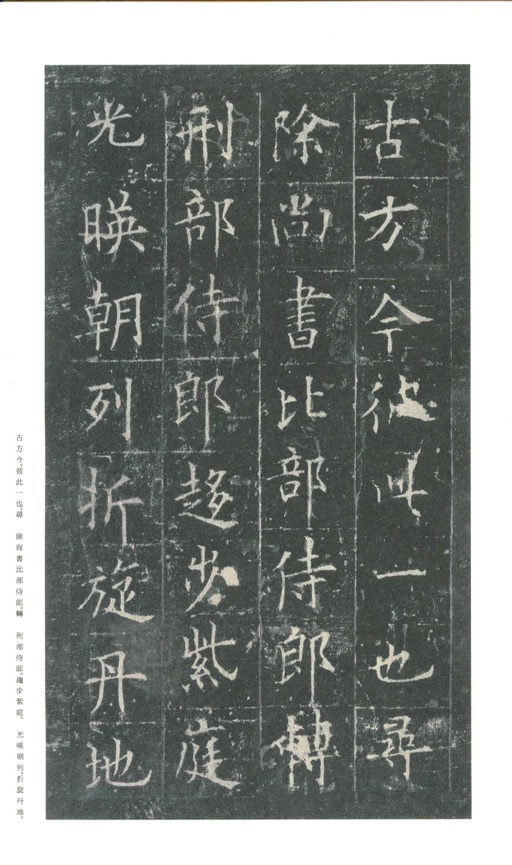 古方今彼此一也尋
除尚書比部侍郎轉
刑部侍郎趍步紫庭
光暎朝列折旋丹地
古方今，彼此一也。尋　除尚書比部侍郎，轉　刑部侍郎。趨步紫庭，　光暎朝列，折旋丹地。